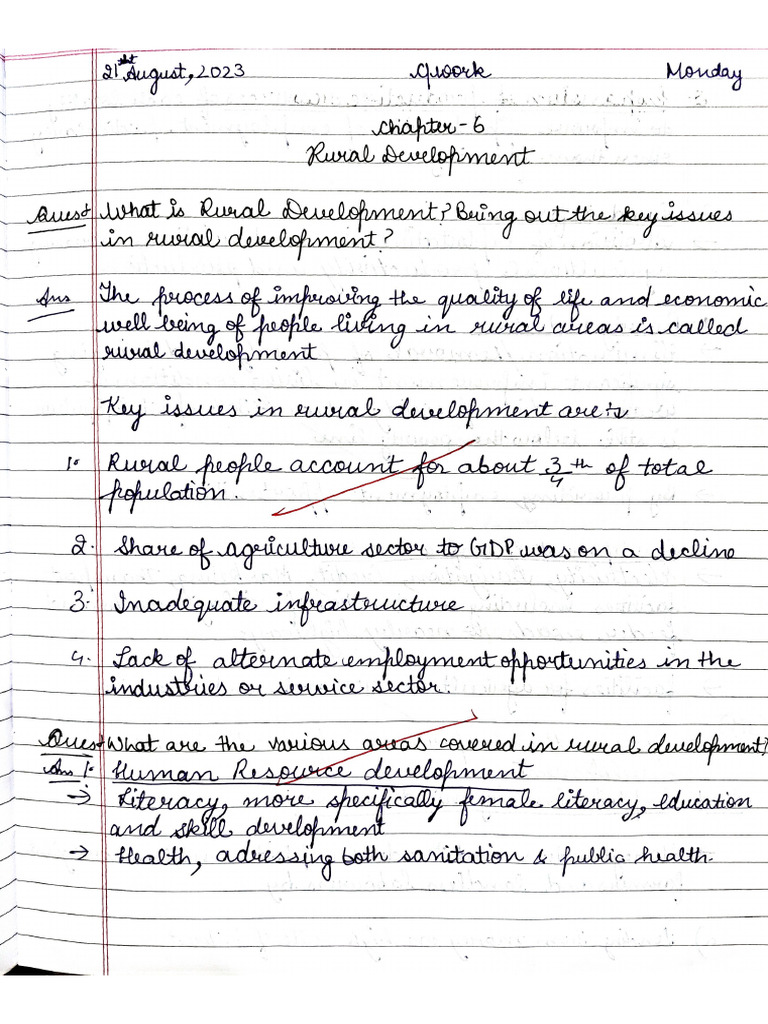 21st August, 2023 Cwork Monday
Chapter-6
Rural Development
Ques1 What is Rural Development? Bring out the key issues
in rural development?
Ans The process of improving the quality of life and economic
well being of people living in rural areas is called
rural development
Key issues in rural development are:-
1. Rural people account for about 3/4 th of total
population.
2. Share of agriculture sector to GDP was on a decline
3. Inadequate infrastructure
4. Lack of alternate employment opportunities in the
industries or service sector.
Ques What are the various areas covered in rural development?
Ans 1. Human Resource development
→ Literacy, more specifically female literacy, education
and skill development
→ Health, adressing both sanitation & public health.